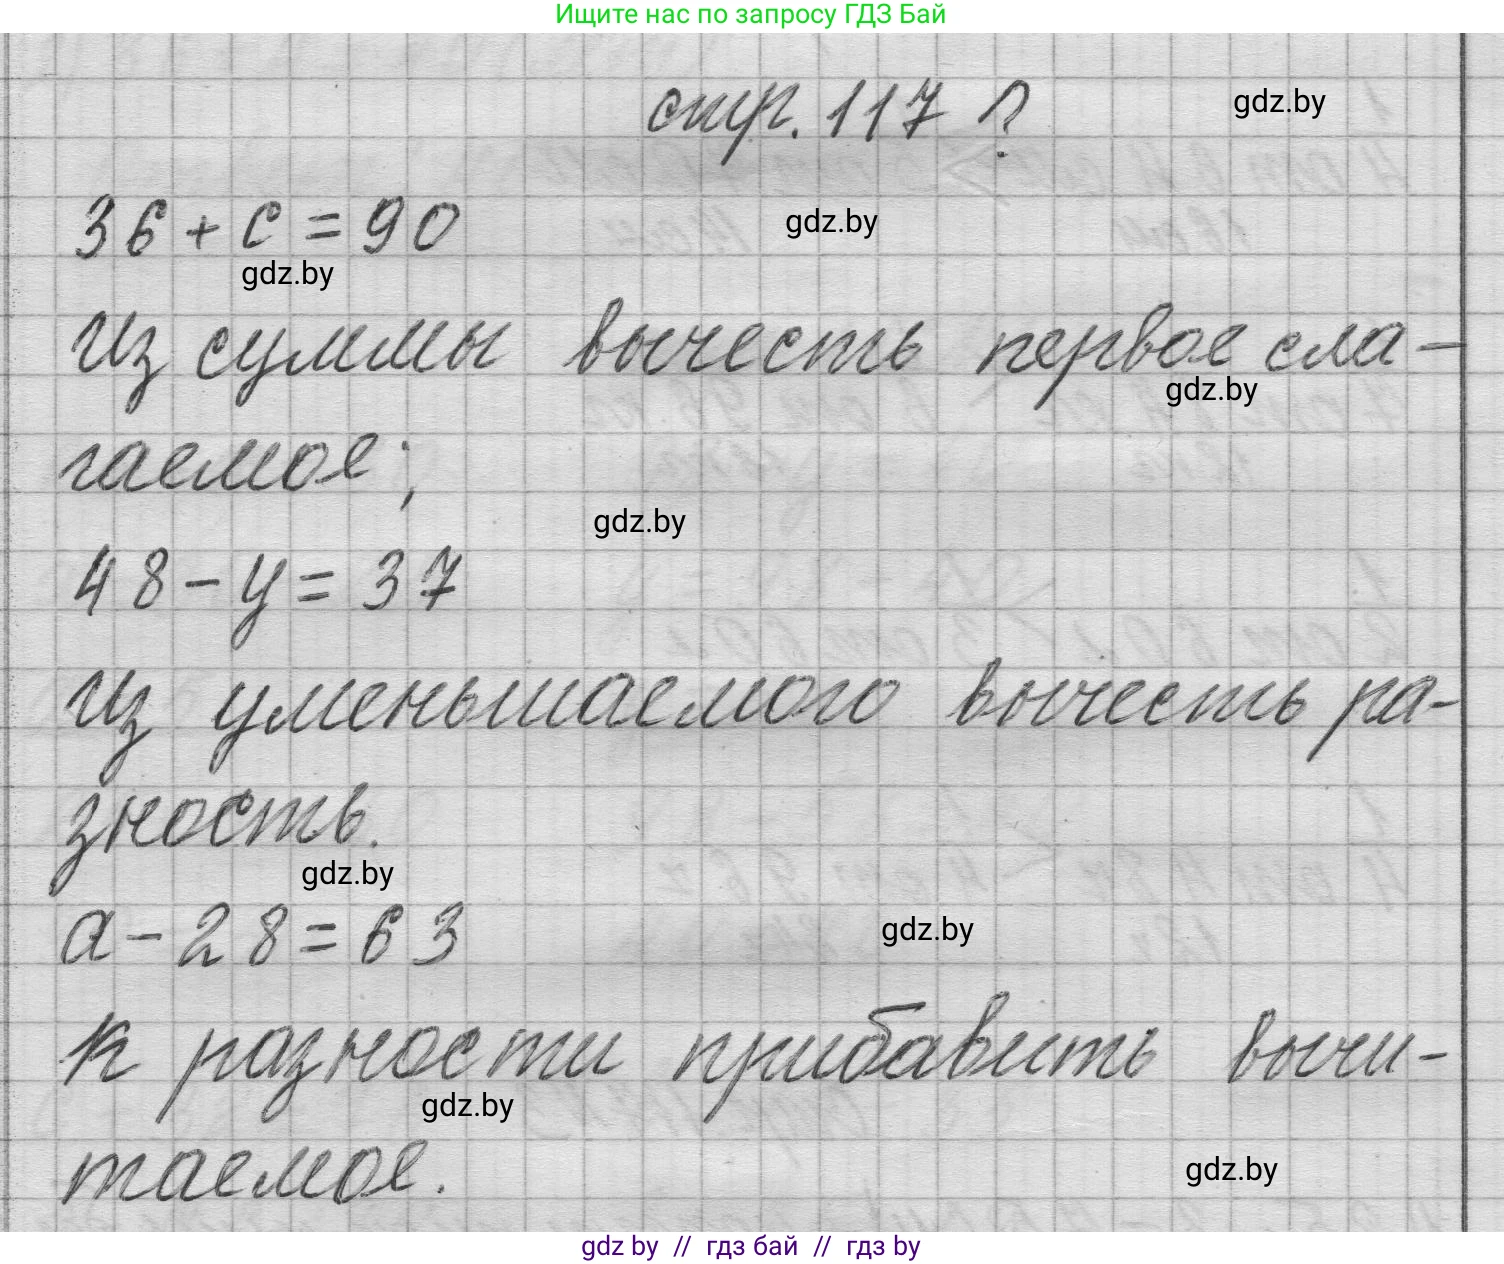 Ищите нас по запросу ГДЗ Бай
стр. 117 ?
gdz.by
36 + c = 90
gdz.by
gdz.by
Из суммы вычесть первое сла-
gdz.by
гаемое;
gdz.by
48 - y = 37
Из уменьшаемого вычесть ра-
зность.
gdz.by
a - 28 = 63
gdz.by
К разности прибавить вычи-
gdz.by
таемое.
gdz.by
gdz by // гдз бай // гдз by